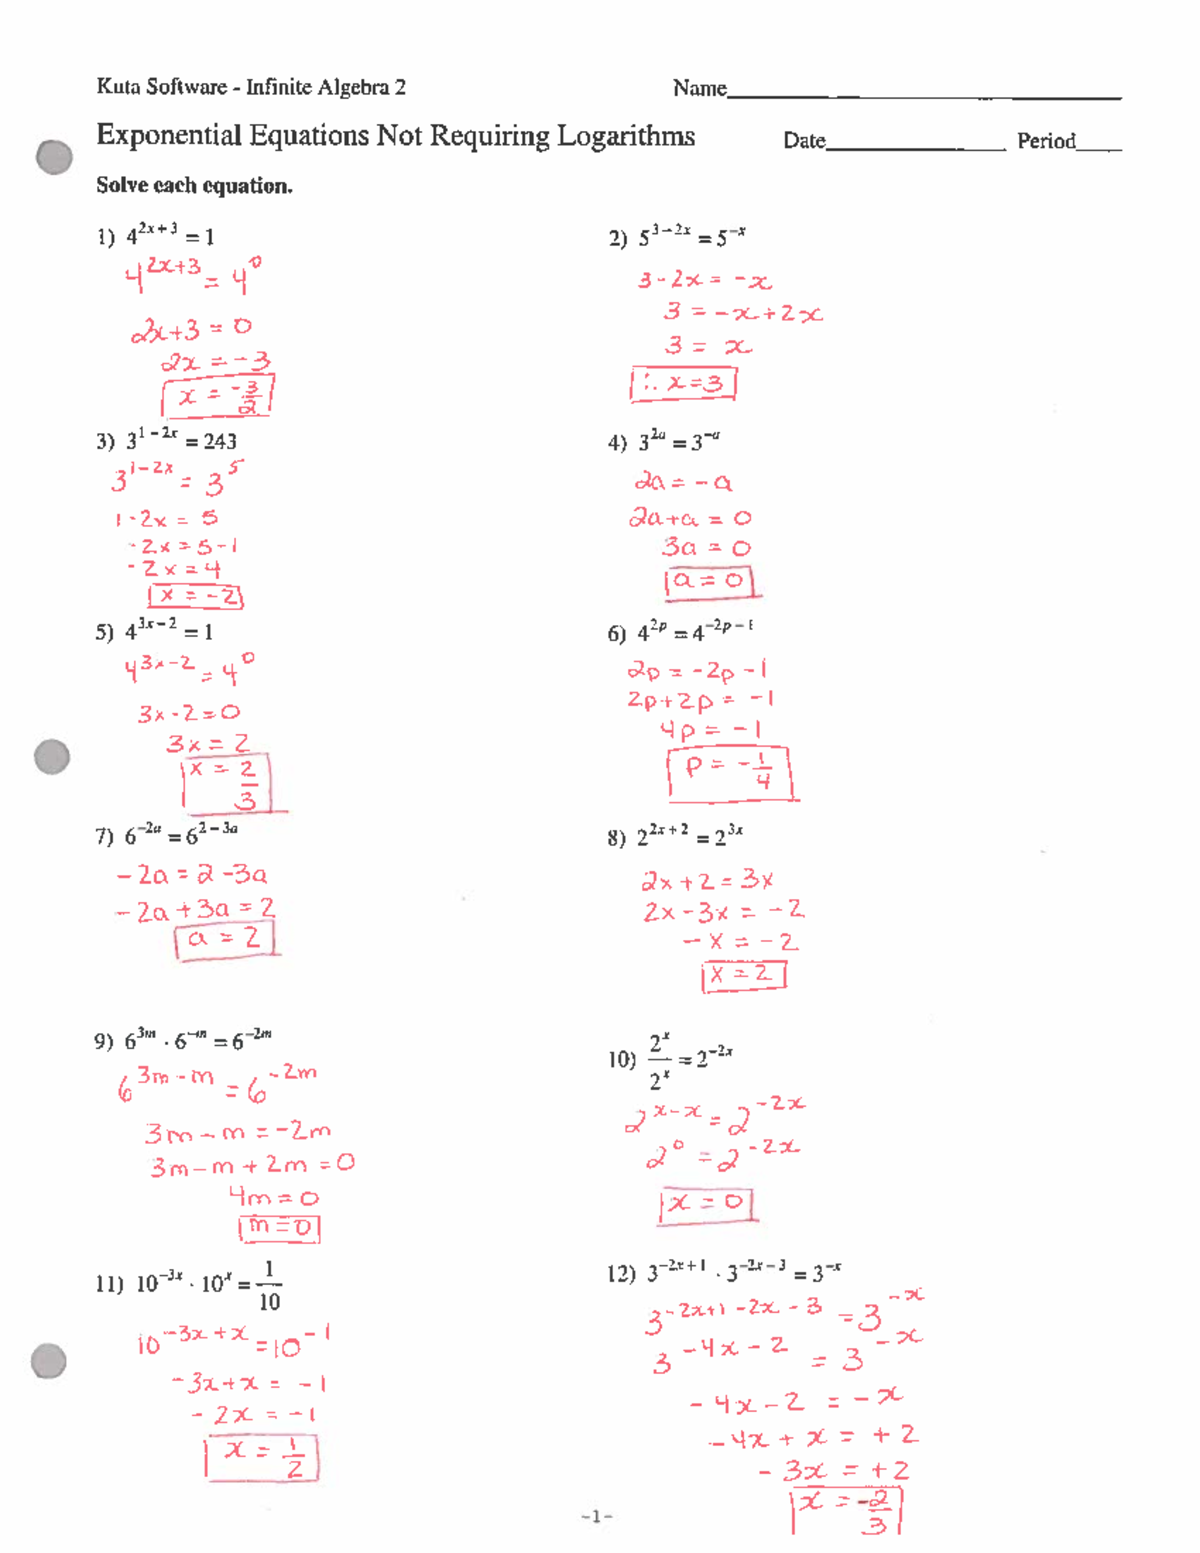 Kuta Software - Infinite Algebra 2 Name
Exponential Equations Not Requiring Logarithms Date Period
Solve each equation.
1) 4^(2x + 3) = 1
4^(2x+3) = 4^0
2x+3 = 0
2x = -3
x = -3/2
2) 5^(3 - 2x) = 5^(-x)
3-2x = -x
3 = -x+2x
3 = x
∴ x=3
3) 3^(1 - 2x) = 243
3^(1-2x) = 3^5
1-2x = 5
-2x = 5-1
-2x = 4
x = -2
4) 3^(2a) = 3^(-a)
2a = -a
2a+a = 0
3a = 0
a = 0
5) 4^(3x - 2) = 1
4^(3x-2) = 4^0
3x-2=0
3x = 2
x = 2/3
6) 4^(2p) = 4^(-2p - 1)
2p = -2p -1
2p+2p = -1
4p = -1
p = -1/4
7) 6^(-2a) = 6^(2 - 3a)
-2a = 2 -3a
-2a +3a = 2
a = 2
8) 2^(2x + 2) = 2^(3x)
2x +2 = 3x
2x -3x = -2
-x = -2
x = 2
9) 6^(3m) · 6^(-m) = 6^(-2m)
6^(3m-m) = 6^(-2m)
3m - m = -2m
3m - m + 2m = 0
4m = 0
m = 0
10) 2^x/2^x = 2^(-2x)
2^(x-x) = 2^(-2x)
2^0 = 2^(-2x)
x = 0
11) 10^(-3x) · 10^x = 1/10
10^(-3x+x) = 10^(-1)
-3x+x = -1
-2x = -1
x = 1/2
12) 3^(-2x + 1) · 3^(-2x - 3) = 3^(-x)
3^(-2x+1 -2x -3) = 3^(-x)
3^(-4x-2) = 3^(-x)
-4x-2 = -x
-4x + x = +2
-3x = +2
x = -2/3
-1-